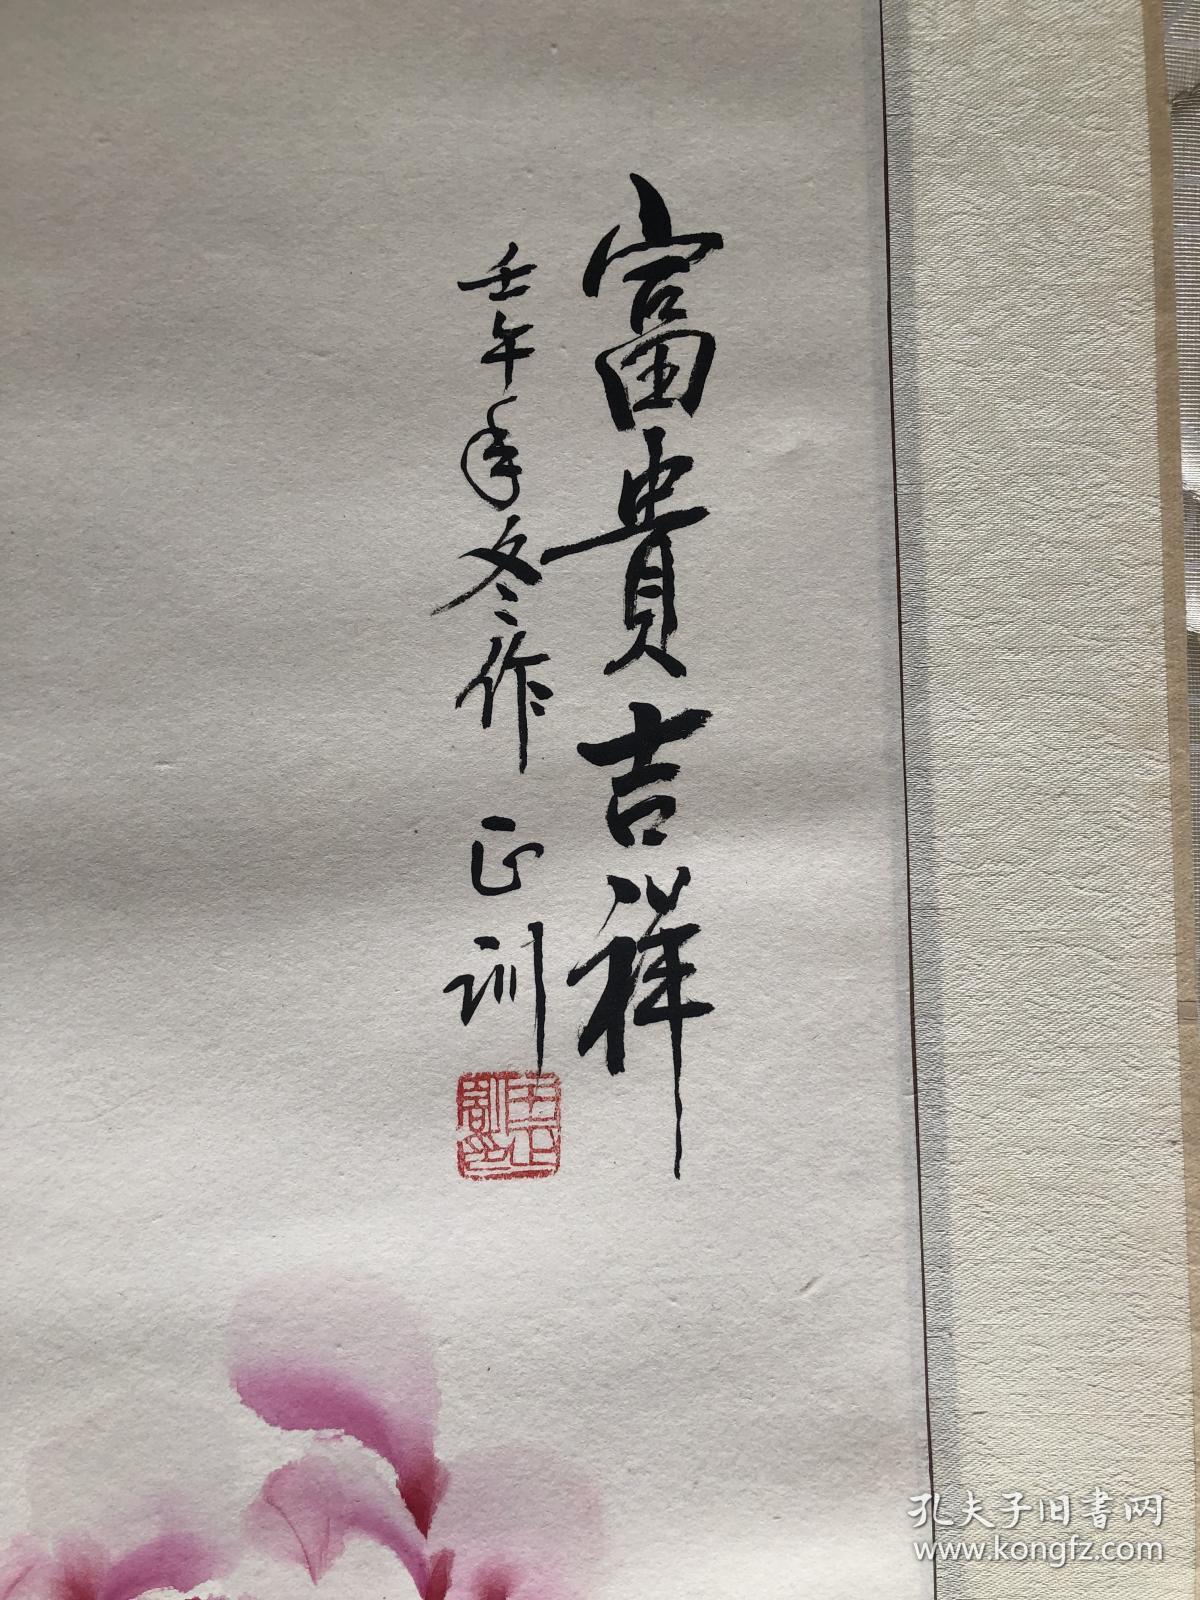 富貴吉祥
壬午年冬作 正训
孔夫子旧書网
www.kongfz.com